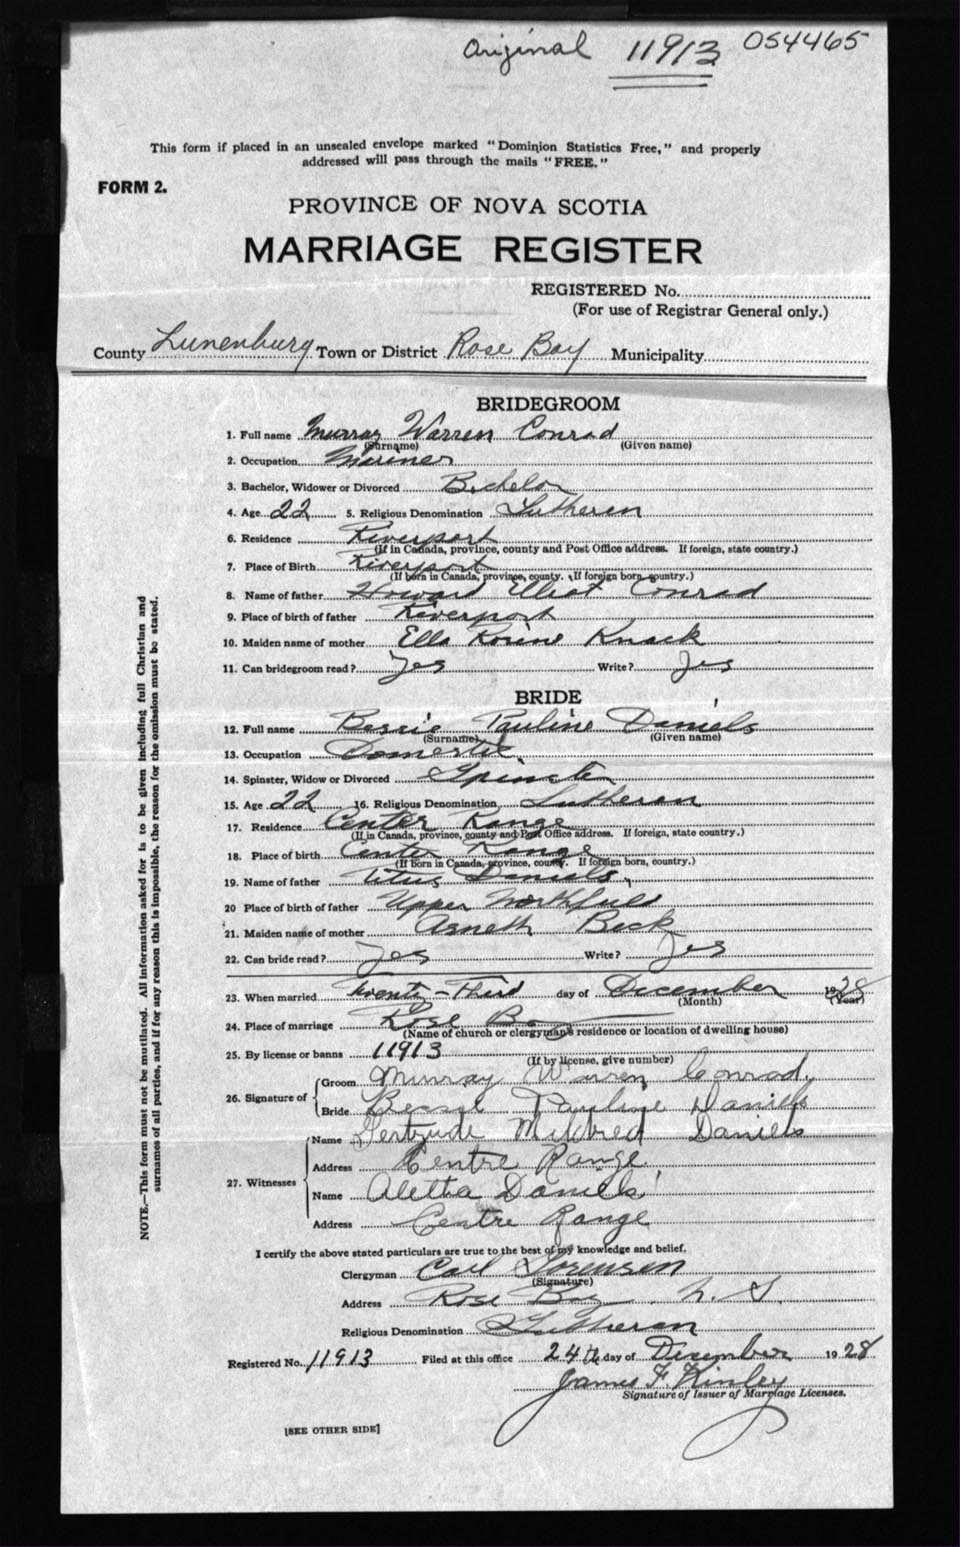 Original 11913 054465
This form if placed in an unsealed envelope marked "Dominion Statistics Free," and properly
addressed will pass through the mails "FREE."
FORM 2.
PROVINCE OF NOVA SCOTIA
MARRIAGE REGISTER
REGISTERED No.
(For use of Registrar General only.)
County Lunenburg Town or District Rose Bay Municipality
BRIDEGROOM
1. Full name Murray Warren Conrad
(Surname) (Given name)
2. Occupation Mariner
3. Bachelor, Widower or Divorced Bachelor
4. Age 22 5. Religious Denomination Lutheren
6. Residence Riverport
(If in Canada, province, county and Post Office address. If foreign, state country.)
7. Place of Birth Riverport
(If born in Canada, province, county. If foreign born, country.)
8. Name of father Howard Elliot Conrad
9. Place of birth of father Riverport
10. Maiden name of mother Ella Knack
11. Can bridegroom read? Yes Write? Yes
BRIDE
12. Full name Bessie Pauline Daniels
(Surname) (Given name)
13. Occupation Domestic
14. Spinster, Widow or Divorced Spinster
15. Age 22 16. Religious Denomination Lutheran
17. Residence Center Range
(If in Canada, province, county and Post Office address. If foreign, state country.)
18. Place of birth Center Range
(If born in Canada, province, county. If foreign born, country.)
19. Name of father Titus Daniels
20 Place of birth of father Upper Northfield
21. Maiden name of mother Asneth Beck
22. Can bride read? Yes Write? Yes
23. When married Twenty-Third day of December 1928
(Month) (Year)
24. Place of marriage Rose Bay
(Name of church or clergyman's residence or location of dwelling house)
25. By license or banns 11913
(If by license, give number)
26. Signature of
Groom Murray Warren Conrad.
Bride Bessie Pauline Daniels
27. Witnesses
Name Gertrude Mildred Daniels
Address Centre Range
Name Aletha Daniels
Address Centre Range
I certify the above stated particulars are true to the best of my knowledge and belief.
Clergyman Carl Sorensen
(Signature)
Address Rose Bay N. S.
Religious Denomination Lutheran
Registered No. 11913 Filed at this office 24th day of December 1928
James F. Kinley
Signature of Issuer of Marriage Licenses.
[SEE OTHER SIDE]
NOTE.—This form must not be mutilated. All information asked for is to be given including full Christian and
surnames of all parties, and if for any reason this is impossible, the reason for the omission must be stated.